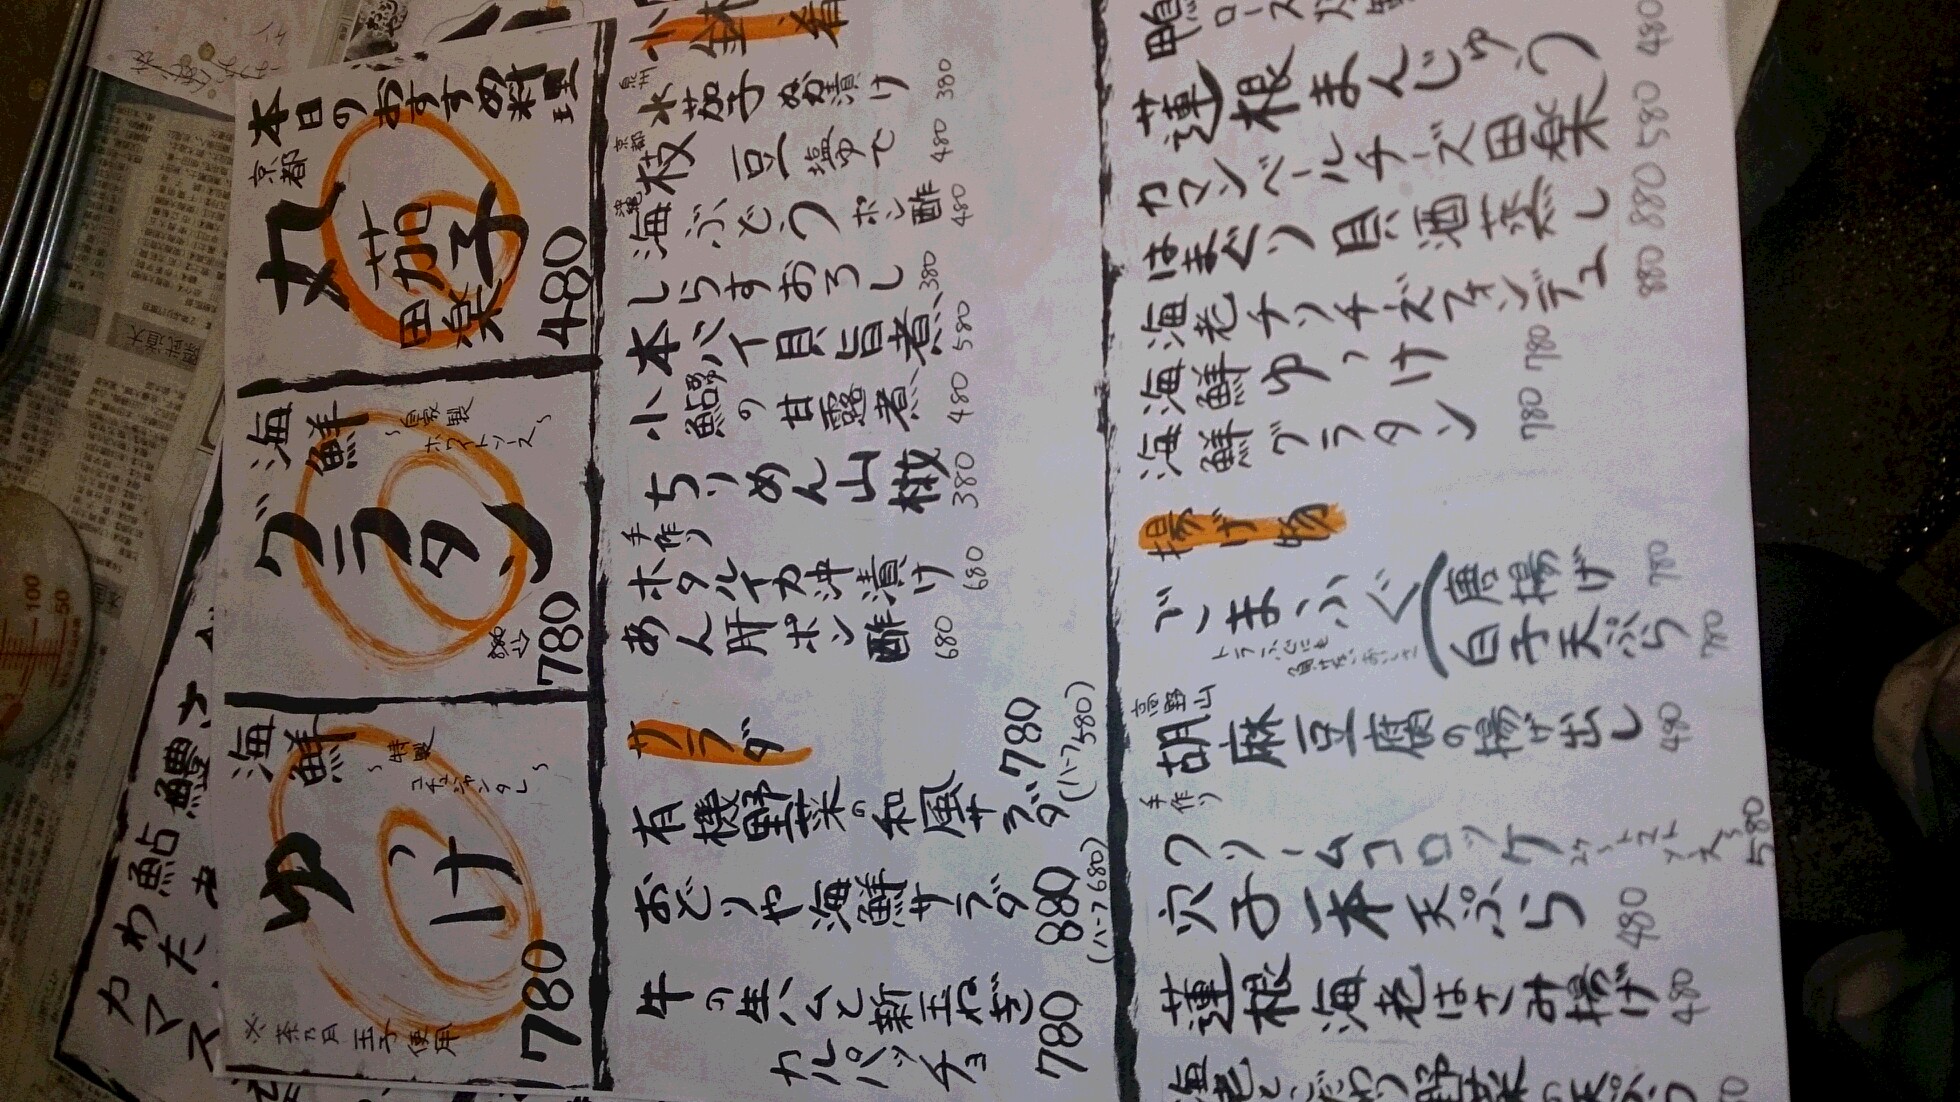 本日のおすすめ料理
京都
丸茄子
田楽
480
海鮮
グラタン
~自家製
ホワイトソース~
780
海鮮
ゆっけ
~特製
コチュジャンタレ~
780
小鉢 肴
泉州
水茄子ぬか漬け 380
京都
枝豆塩ゆで 480
沖縄
海ぶどうポン酢 480
しらすおろし 380
本バイ貝旨煮 580
小鮎の甘露煮 480
ちりめん山椒 380
手作り
ホタルイカ沖漬け 680
あん肝ポン酢 680
サラダ
有機野菜の和風サラダ 780
(ハーフ580)
おどりや海鮮サラダ 880
(ハーフ680)
牛の生ハムと新玉ねぎ
カルパッチョ 780
蓮根まんじゅう 480
カマンベールチーズ田楽 580
はまぐり貝酒蒸し 880
海老チリチーズフォンデュ 880
海鮮ゆっけ 780
海鮮グラタン 780
揚げ物
ごまふぐ
唐揚げ 780
白子天ぷら 780
高野山
胡麻豆腐の揚げ出し 480
手作り
クリームコロッケ 580
穴子一本天ぷら 480
蓮根海老はさみ揚げ 480
海老とこだわり野菜の天ぷら